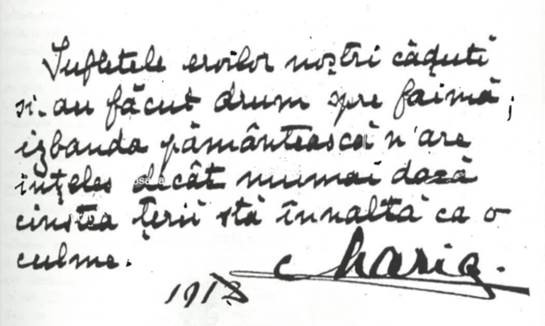 Sufletele eroilor noștri căduți
și-au făcut drum spre faimă;
izbanda pământească n'are
ințeles decât numai dacă
cinstea țerii stă înnaltă ca o
culme.
Maria.